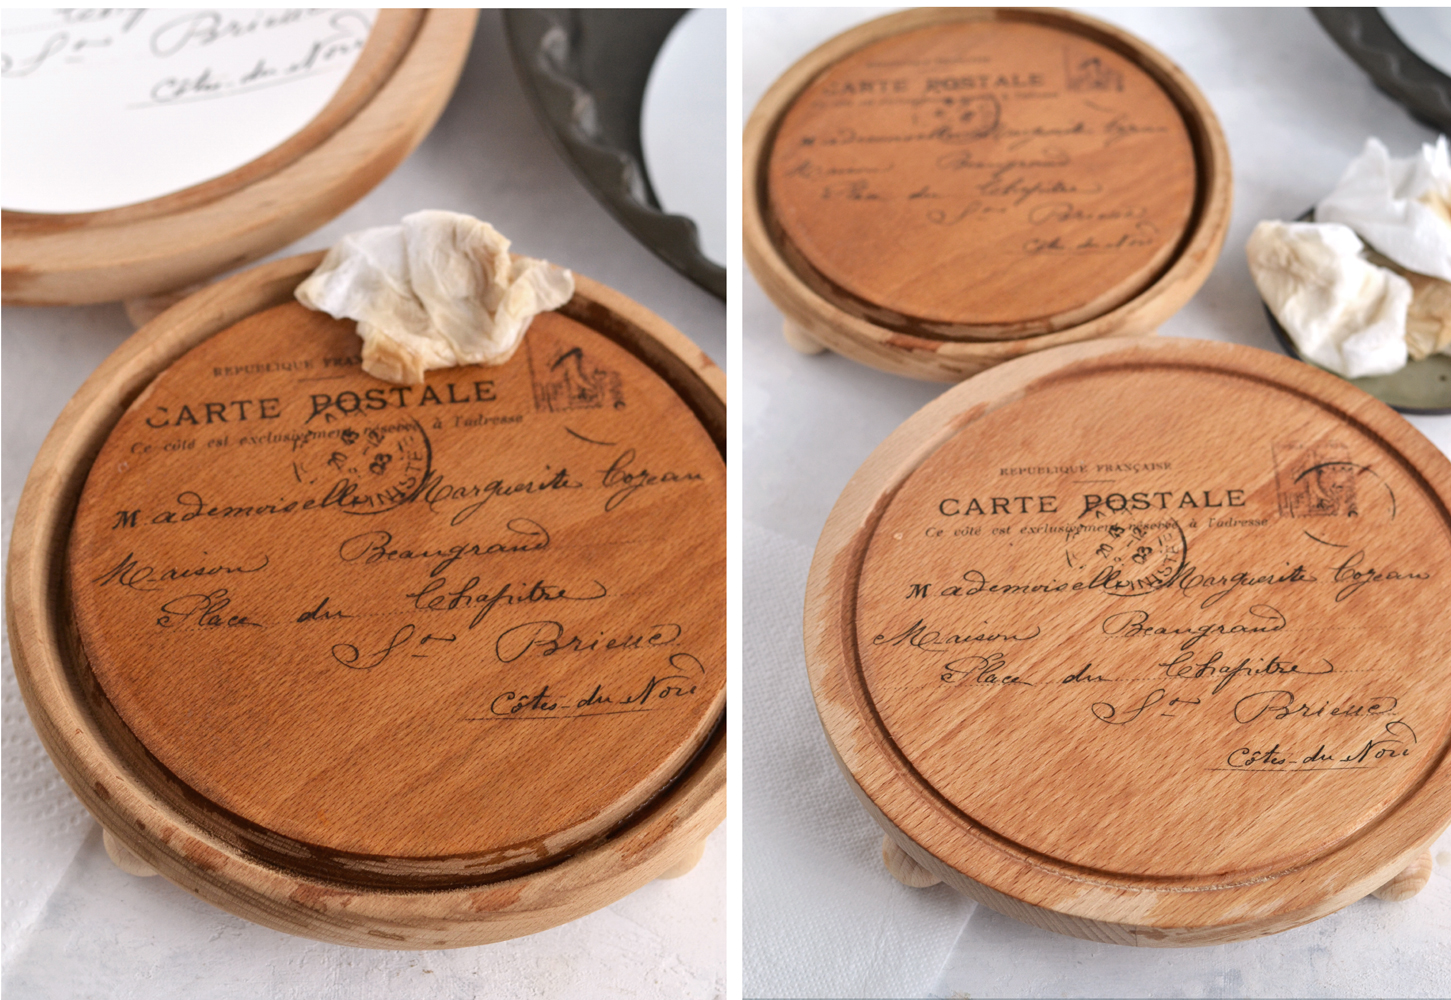 St Brieuc
Côtes-du-Nord
REPUBLIQUE FRAN
CARTE POSTALE
Ce côté est exclusivement réservé à l'adresse
20 12
03
MINISTE
Mademoiselle Marguerite Cozeau
Maison Beaugrand
Place du Chapitre
St Brieuc
Côtes-du-Nord
CARTE POSTALE
Mademoiselle Marguerite Cozeau
Maison Beaugrand
Place du Chapitre
St Brieuc
Côtes du Nord
REPUBLIQUE FRANÇAISE
CARTE POSTALE
Ce côté est exclusivement réservé à l'adresse
20 12
03
MINISTE
Mademoiselle Marguerite Cozeau
Maison Beaugrand
Place du Chapitre
St Brieuc
Côtes-du-Nord